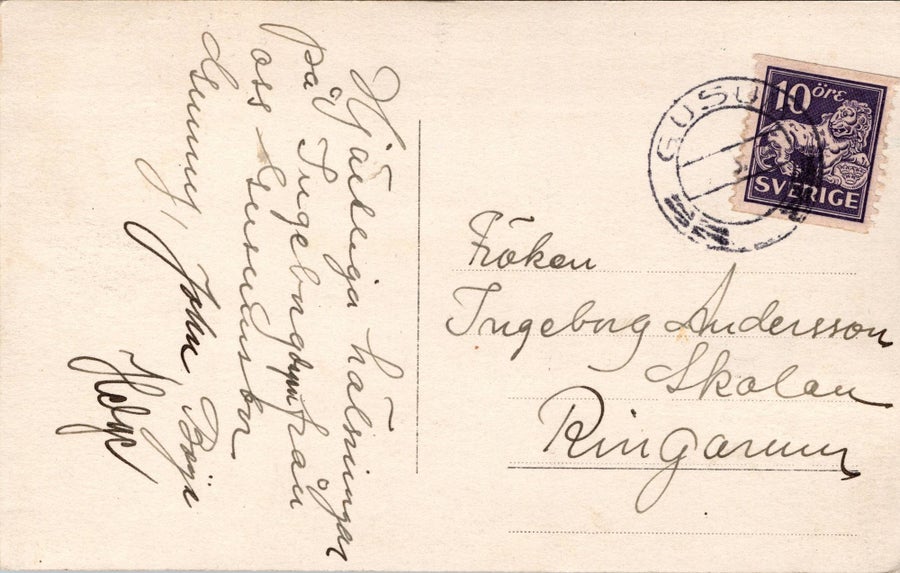 Hjärtliga hälsningar
på Ingeborgdagen från
oss Gusumsbor
Gunny, John, Börje
Helge
GUSUM
10 ÖRE
SVERIGE
Fröken
Ingeborg Andersson
Skolan
Ringarum